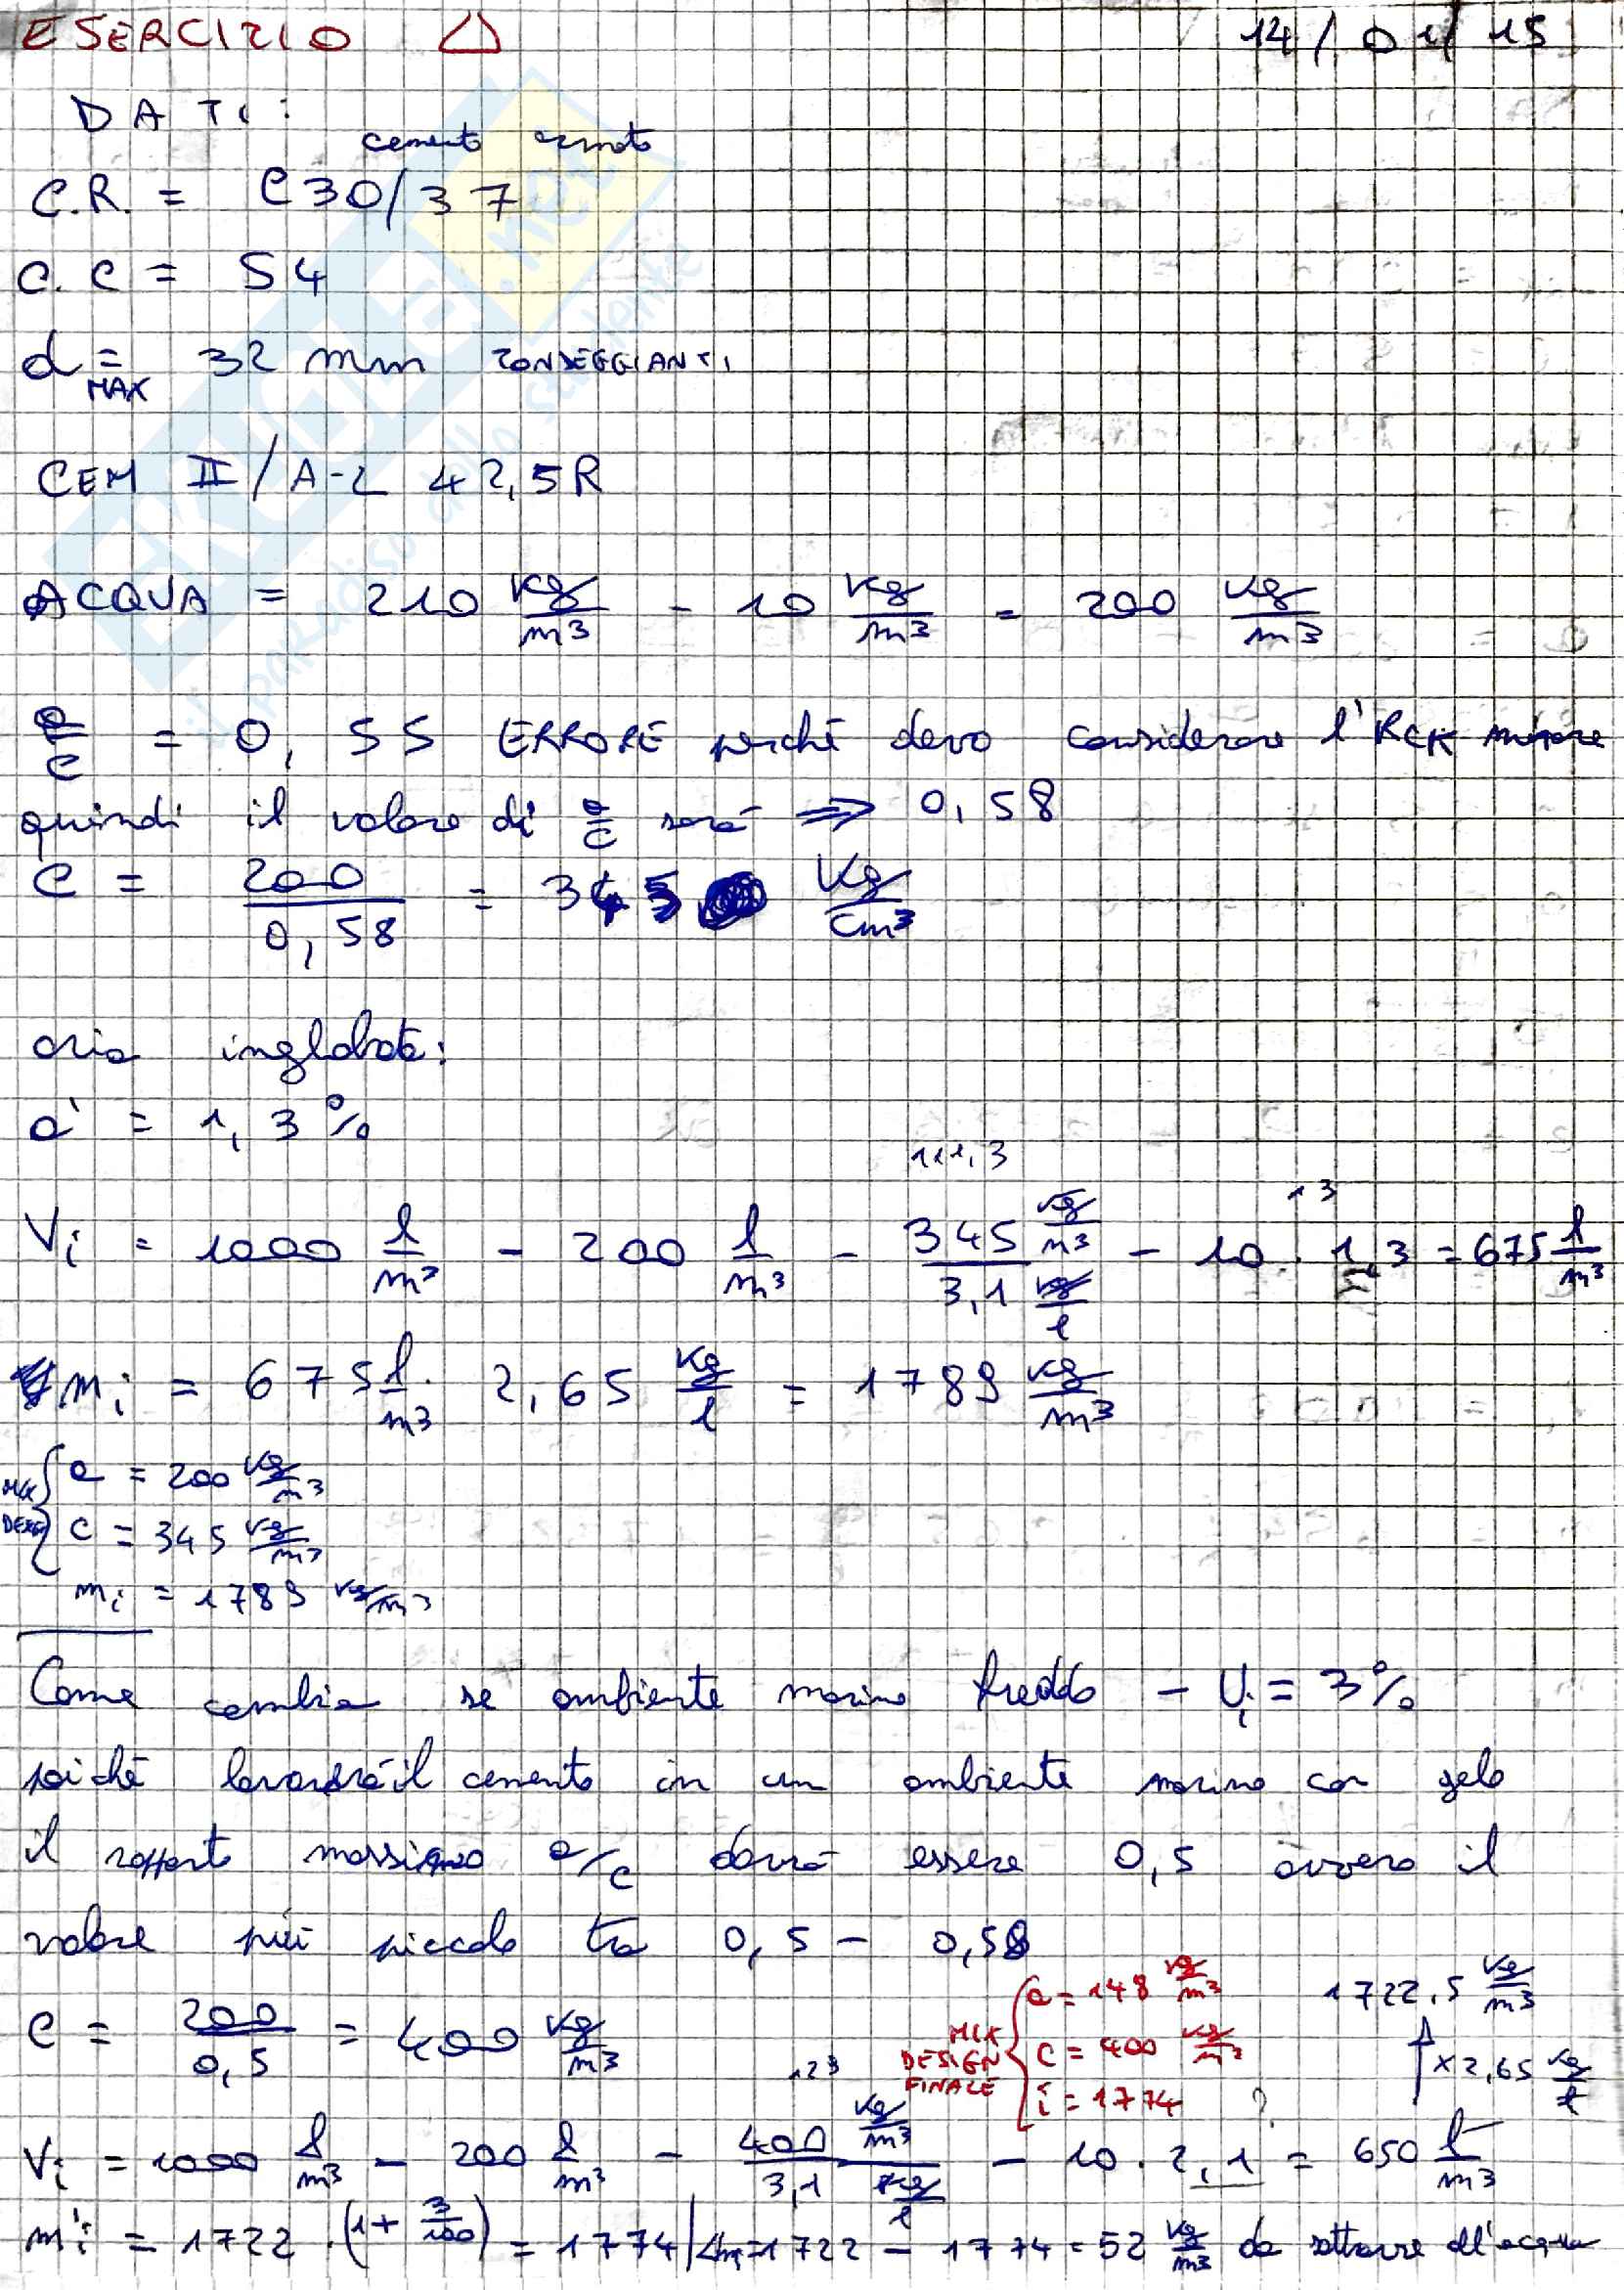 ESERCIZIO △ 14/01/15
DATI:
cemento armato
C.R. = C30/37
C.C = S4
d MAX = 32 mm TONDEGGIANTI
CEM II/A-L 42,5R
ACQUA = 210 kg/m³ - 10 kg/m³ = 200 kg/m³
a/c = 0,55 ERRORE perché devo considerare l'RCK minore
quindi il valore di a/c sarà ⇒ 0,58
C = 200/0,58 = 345 Kg/cm³
aria inglobata:
a' = 1,3%
111,3 13
Vi = 1000 l/m³ - 200 l/m³ - 345 kg/m³ / 3,1 kg/l - 10 · 1,3 = 675 l/m³
mi = 675 l/m³ · 2,65 kg/l = 1789 kg/m³
MIX DESIGN { a = 200 kg/m³
c = 345 kg/m³
mi = 1789 kg/m³
Come cambia se ambiente marino freddo - Ui = 3%
poiché lavorerà il cemento in un ambiente marino con gelo
il rapporto massimo a/c dovrà essere 0,5 ovvero il
valore più piccolo tra 0,5 - 0,58
C = 200/0,5 = 400 kg/m³
MIX DESIGN FINALE { a = 148 kg/m³
c = 400 kg/m³
i = 1774
1722,5 kg/m³
↑ × 2,65 kg/l
129 ?
Vi = 1000 l/m³ - 200 l/m³ - 400 kg/m³ / 3,1 kg/l - 10 · 2,1 = 650 l/m³
m'i = 1722 · (1 + 3/100) = 1774 | = 1722 - 1774 = 52 kg/m³ da sottrarre all'acqua
il paradiso dello studente
SKUOLA.net